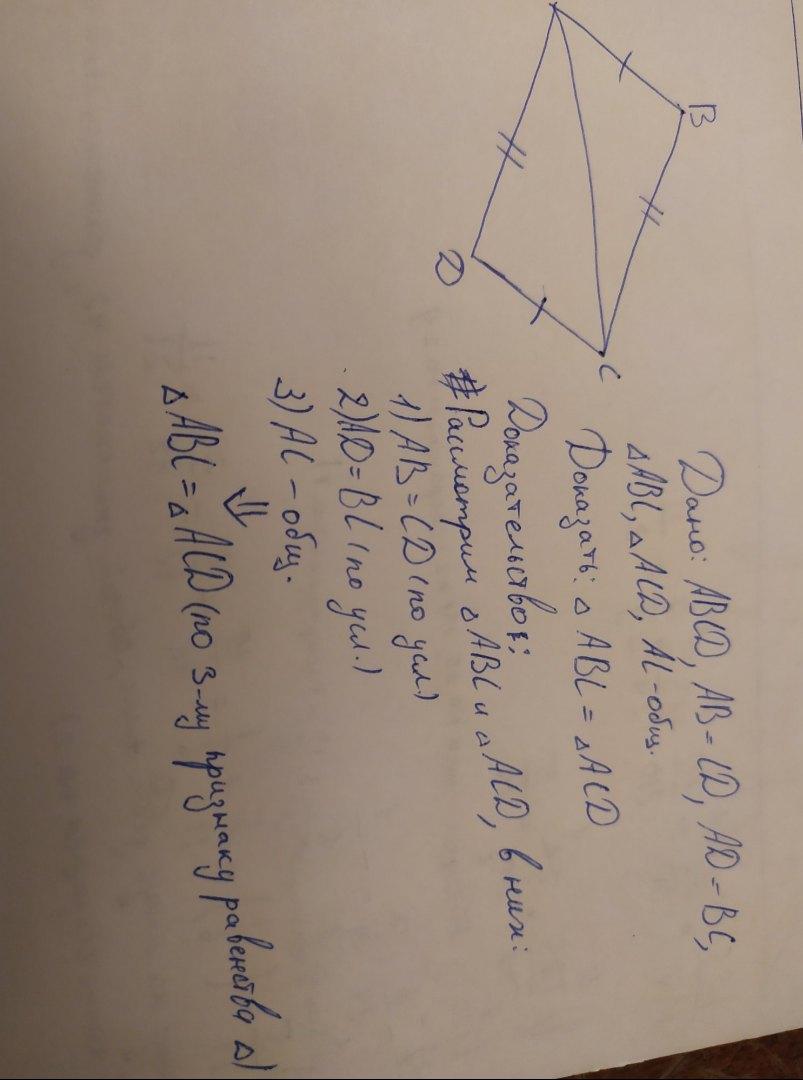 B
D
C
Дано: ABCD, AB = CD, AD = BC,
△ABC, △ACD, AC - общ.
Доказать: △ABC = △ACD
Доказательство:
Рассмотрим △ABC и △ACD, в них:
1) AB = CD (по усл)
2) AD = BC (по усл.)
3) AC - общ.
⇓
△ABC = △ACD (по 3-му признаку равенства △)